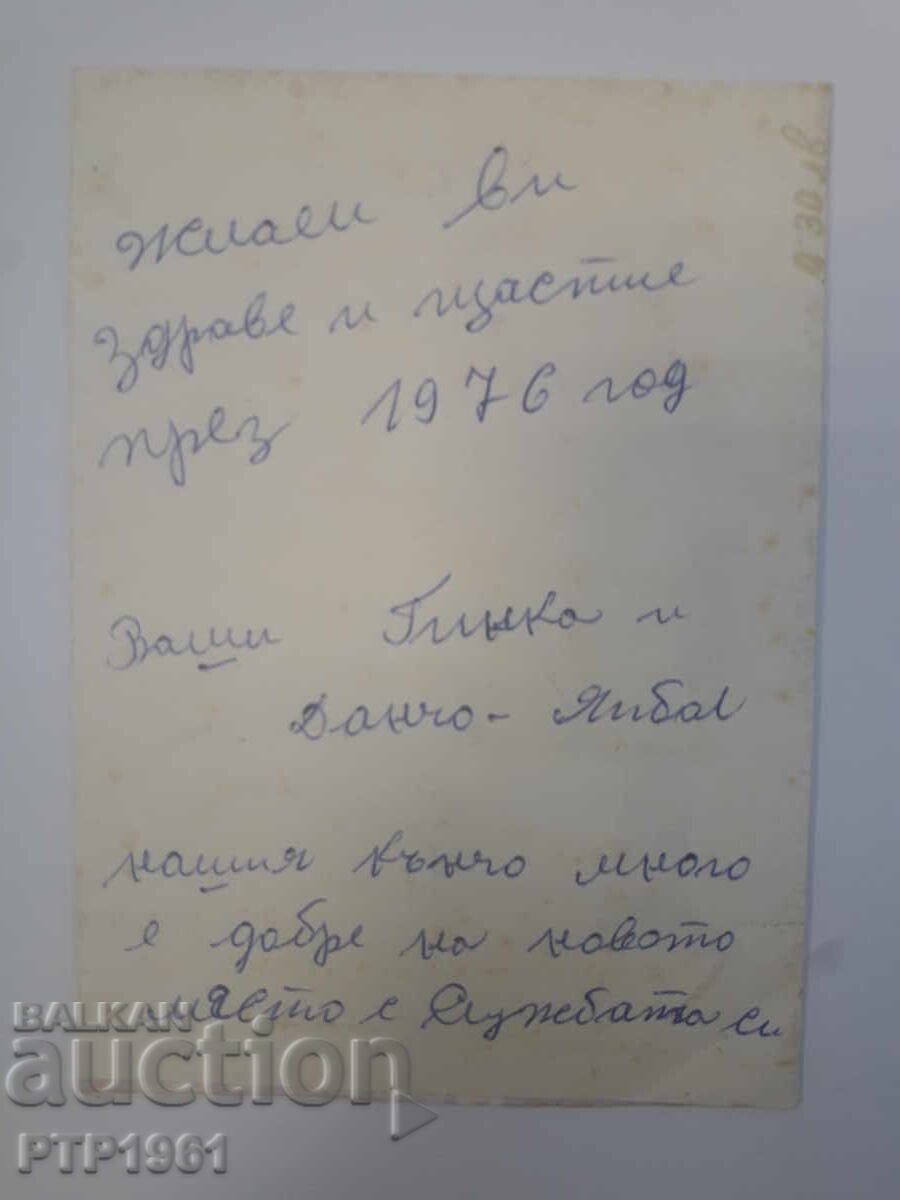 Жилаем ви
здраве и щастие
през 1976 год
Ваши Гинка и
Данчо - Ямбол
нашия Кънчо много
е добре на новото
място с Службата си
0 30 лв
BALKAN
auction
PTP1961